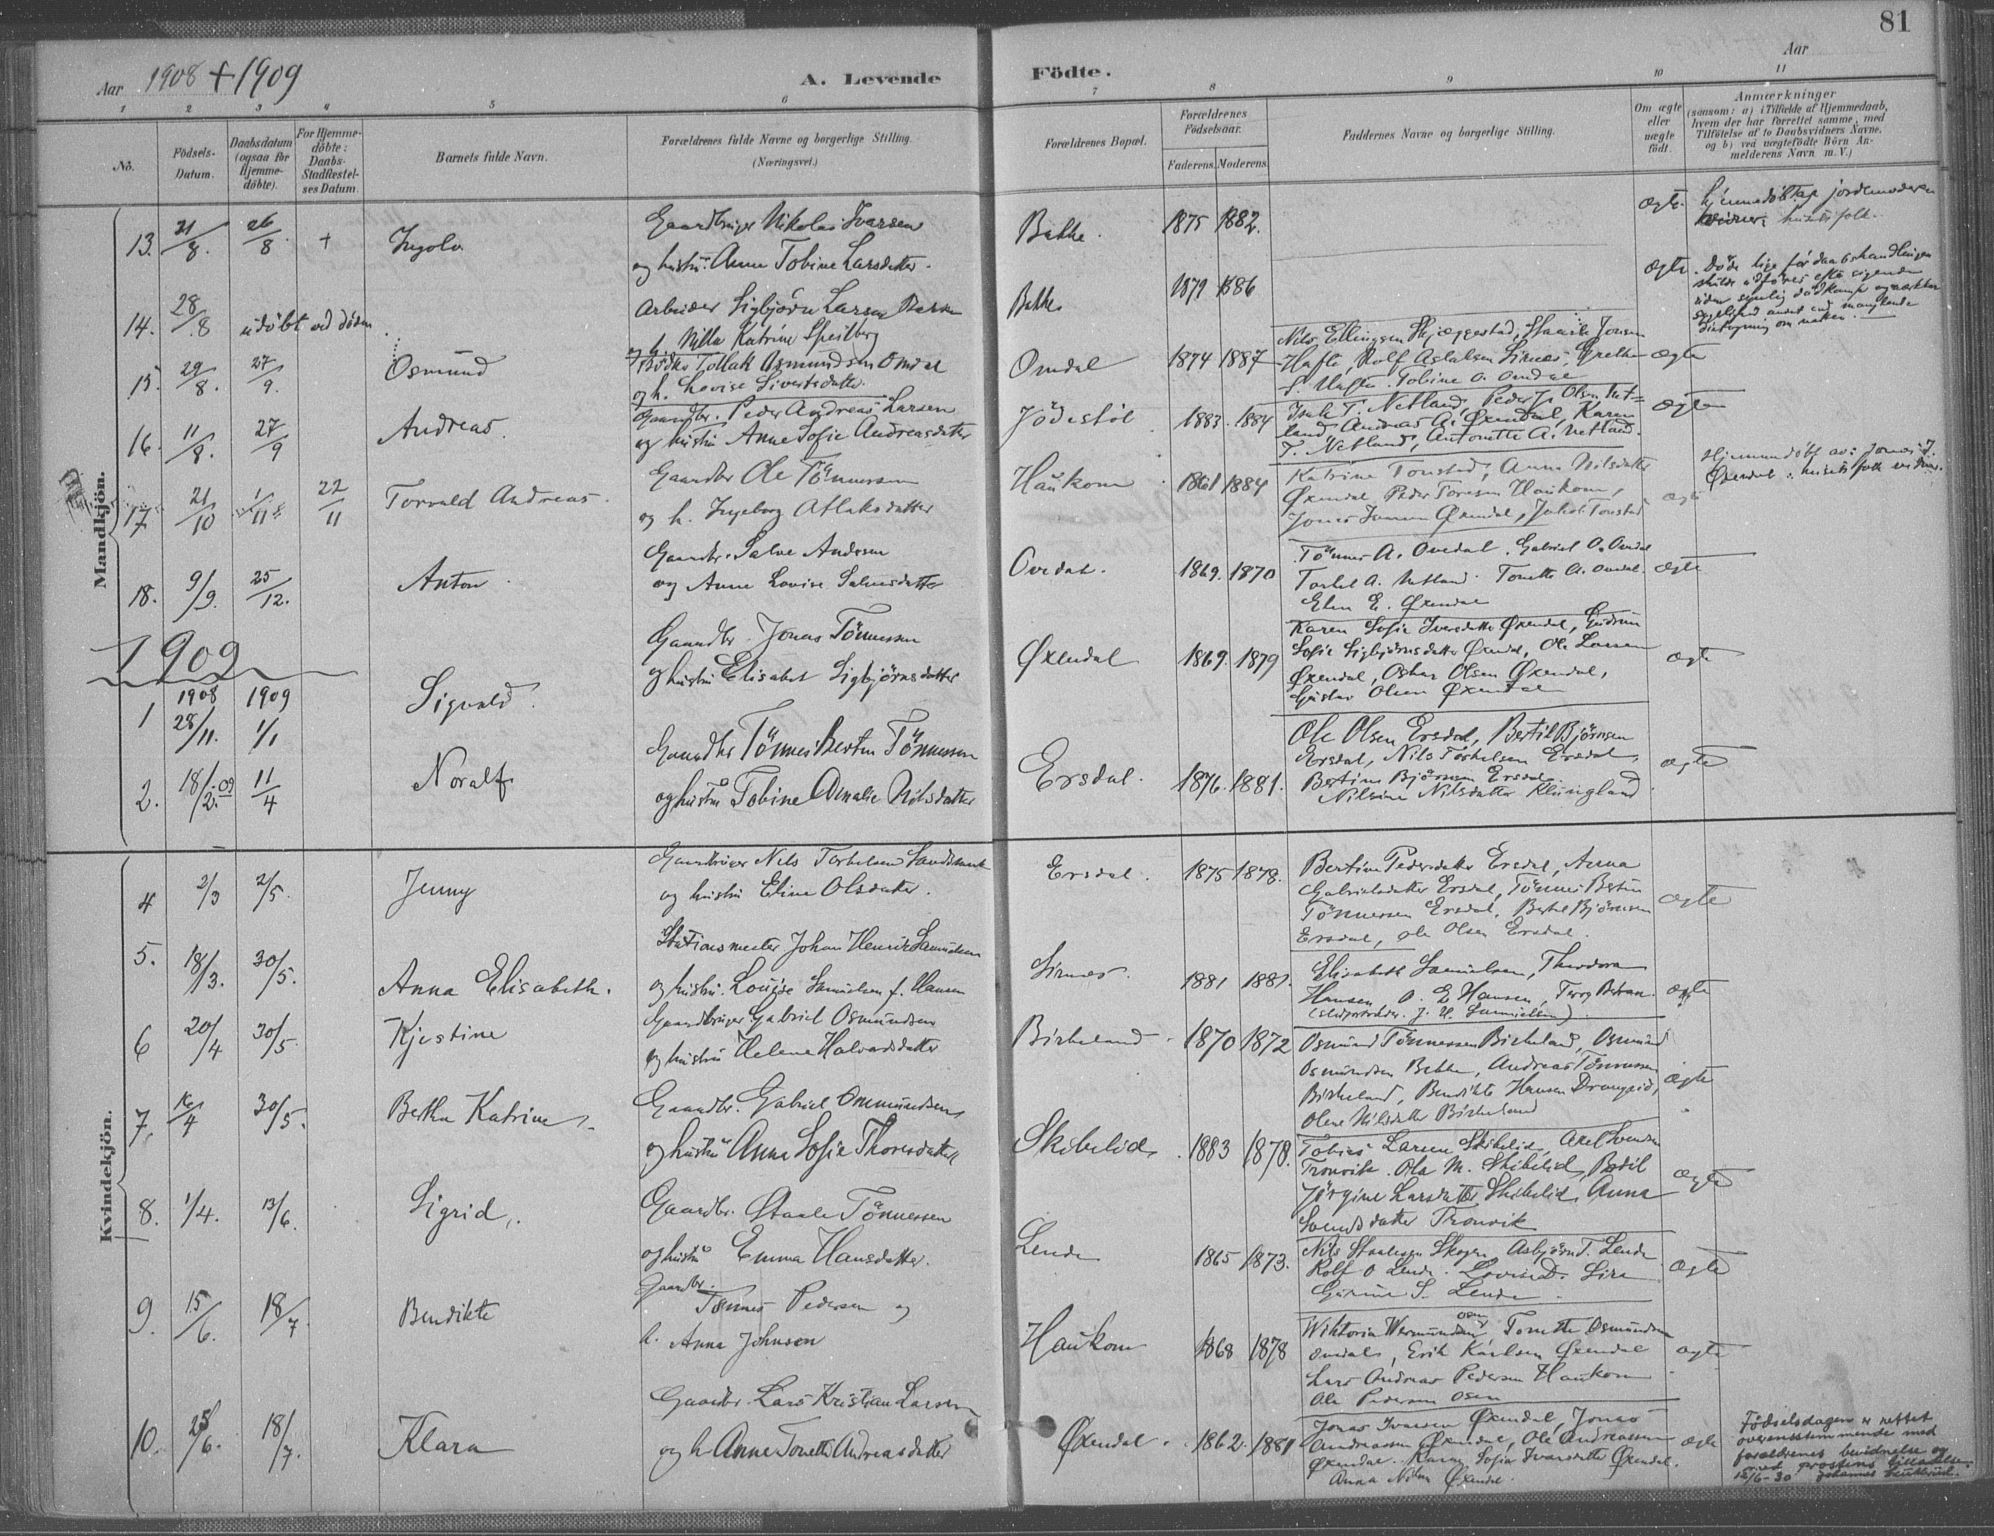 81
Aar 1908 + 1909
A. Levende Födte.
Aar
1 2 3 4 5 6 7 8 9 10 11
No.
Födsels-Datum.
Daabsdatum (ogsaa for Hjemme-döbte).
For Hjemme-döbte: Daabs-Stadfæstel-ses Datum.
Barnets fulde Navn.
Forældrenes fulde Navne og borgerlige Stilling.
(Næringsvei.)
Forældrenes Bopæl.
Forældrenes Födselsaar.
Faderens. Moderens.
Faddernes Navne og borgerlige Stilling.
Om ægte eller uægte födt.
Anmærkninger
(saasom: a) i Tilfælde af Hjemmedaab,
hvem der har forrettet samme, med
Tilföielse af to Daabsvidners Navne,
og b) ved uægtefödte Börn An-
melderens Navn m. V.)
Mandkjön.
13. 21/8. 26/8. + Ingolv
Gaardbruger Nikolai Ivarsen
og hustru Anne Tobine Larsdatter.
Bakke. 1875 1882.
ægte.
hjemmedöbt af jordemoderen
husets folk.
14. 28/8 udöbt ved döden
Arbeider Sigbjörn Larsen
Katrine
Bakke 1879 1886
ægte.
Döde lige för daabshandlingen
skulde udföres
15. 29/8. 27/9. Osmund
Tollak Osmundsen Omdal
og h. Lovise Sivertsdatter.
Omdal 1874 1887
Nils Ellingsen Skjæggestad, Staale Jonsen
Hafte, Rolf Aslaksen Sirnes Grethe
Hafte. Tobine O. Omdal
ægte
16. 11/8. 27/9 Andreas.
Gaardbr. Peder Andreas Larsen
og hustru Anne Sofie Andreasdatter
Jödestöl 1883. 1884
Isak T. Netland, Peder J. Olsen Net=
land Andreas A. Öxendal, Karen
T. Netland, Antonette A. Netland.
ægte
17 21/10 1/11 22/11 Torvald Andreas.
Gaardbr Ole Tönnessen
og h. Ingeborg Atlaksdatter
Haukom 1861 1884
Katrine Tonstad, Anna Nilsdatter
Öxendal, Peder Toresen Haukom,
Jonas Öxendal, Jakob Tonstad
ægte
Hjemmedöbt av: Jonas J.
Öxendal; husets folk
18. 9/9. 25/12. Anton.
Gaardbr. Salve Andersen
og Anne Lovise Salvesdatter
Ovedal. 1869. 1870
Tönnes A. Ovedal. Gabriel O. Ovedal
Torkel A. Netland. Tonette A. Ovedal.
Elen E. Öxendal
ægte
1909
1 1908 28/11. 1909 1/1 Sigvald.
Gaardbr. Jonas Tönnessen
og hustru Elisabet Sigbjörnsdatter
Øxendal 1869. 1879
Karen Sofie Iversdatter Øxendal, Gudrun
Sofie Sigbjörnsdatter Øxendal, Ole Larsen
Øxendal, Oskar Olsen Øxendal,
Gustav Olsen Øxendal
ægte
2. 18/2.09 11/4 Noralf
Gaardbr Tönnes Bertin Tönnessen
og hustru Tobine Amalie Nilsdatter
Ersdal. 1876. 1881.
Ole Olsen Ersdal, Bertil Björnsen
Ersdal, Nils Torkelsen Ersdal,
Bertine Björnsen Ersdal.
Nilsine Nilsdatter Klungland.
ægte
Kvindekjön.
4 2/3 2/5. Jenny
Gaardbruger Nils Torkelsen Sandsmark
og hustru Eline Olsdatter.
Ersdal. 1875 1878.
Bertine Pedersdatter Ersdal, Anna
Gabrielsdatter Ersdal, Tönnes Bertin
Tönnessen Ersdal, Bertel Björnsen
Ersdal, Ole Olsen Ersdal.
ægte
5. 18/3. 30/5. Anna Elisabeth.
Stationsmester Johan Henrik Samuelsen
og hustru. Louise Samuelsen f. Hansen
Sirnes. 1881 1881.
Elisabeth Samuelsen, Theodora
Hansen, O. E. Hansen,
J. H. Samuelsen).
ægte
6 20/4 30/5. Kjestine
Gaardbruger Gabriel Osmundsen
og hustru Helene Halvardsdatter
Birkeland. 1870 1872
Osmund Tönnessen Birkeland, Osmund
Osmundsen Bakke, Andreas Tönnessen
Birkeland, Bendikte Hansen Drangeid,
Olene Nilsdatter Birkeland
ægte
7. 30/5. Bertha Katrine.
Gaardbr. Gabriel Ommundsen
og hustru Anna Sofie Thoresdatter
Skibelid. 1883 1878.
Tobias Larsen Skibelid, Axel Svendsen
Tronvik. Ola M. Skibelid, Bodil
Jörgine Larsdatter Skibelid, Anna
Svendsdatter Tronvik
ægte
8. 1/4. 13/6. Sigrid.
Gaardbr. Staale Tönnessen
og hustru Emma Hansdatter.
Lende 1865 1873.
Nils Staalesen Skogen, Asbjörn T. Lende
Rolf O Lende. Lovise D. Sira
Gurine S. Lende.
ægte
9. 15/6. 18/7. Bendikte
Gaardbr.
Tönnes Pedersen og
h. Anna Johnsen
Haukom 1868 1878
Wiktoria Wermundsen Osen, Tonette Osmundsen
Omdal, Erik Karlsen Öxendal
Lars Andreas Pedersen Haukom
Ole Pedersen Osen
ægte
10. 25/6. 18/7. Klara
Gaardbr. Lars Kristian Larsen
og h Anne Tonette Andreasdatter
Øxendal. 1862. 1881
Jonas Ivarsen Öxendal, Jonas
Andreassen Öxendal, Ole Andreassen
Öxendal. Karen Sofie Ivarsdatter Öxendal.
Anna Nilsen Öxendal.
ægte
Födselsdagen er rettet
overensstemmende med
forældrenes bevidnelse og
med prostens tilladelse.
12/6-30 Johannes